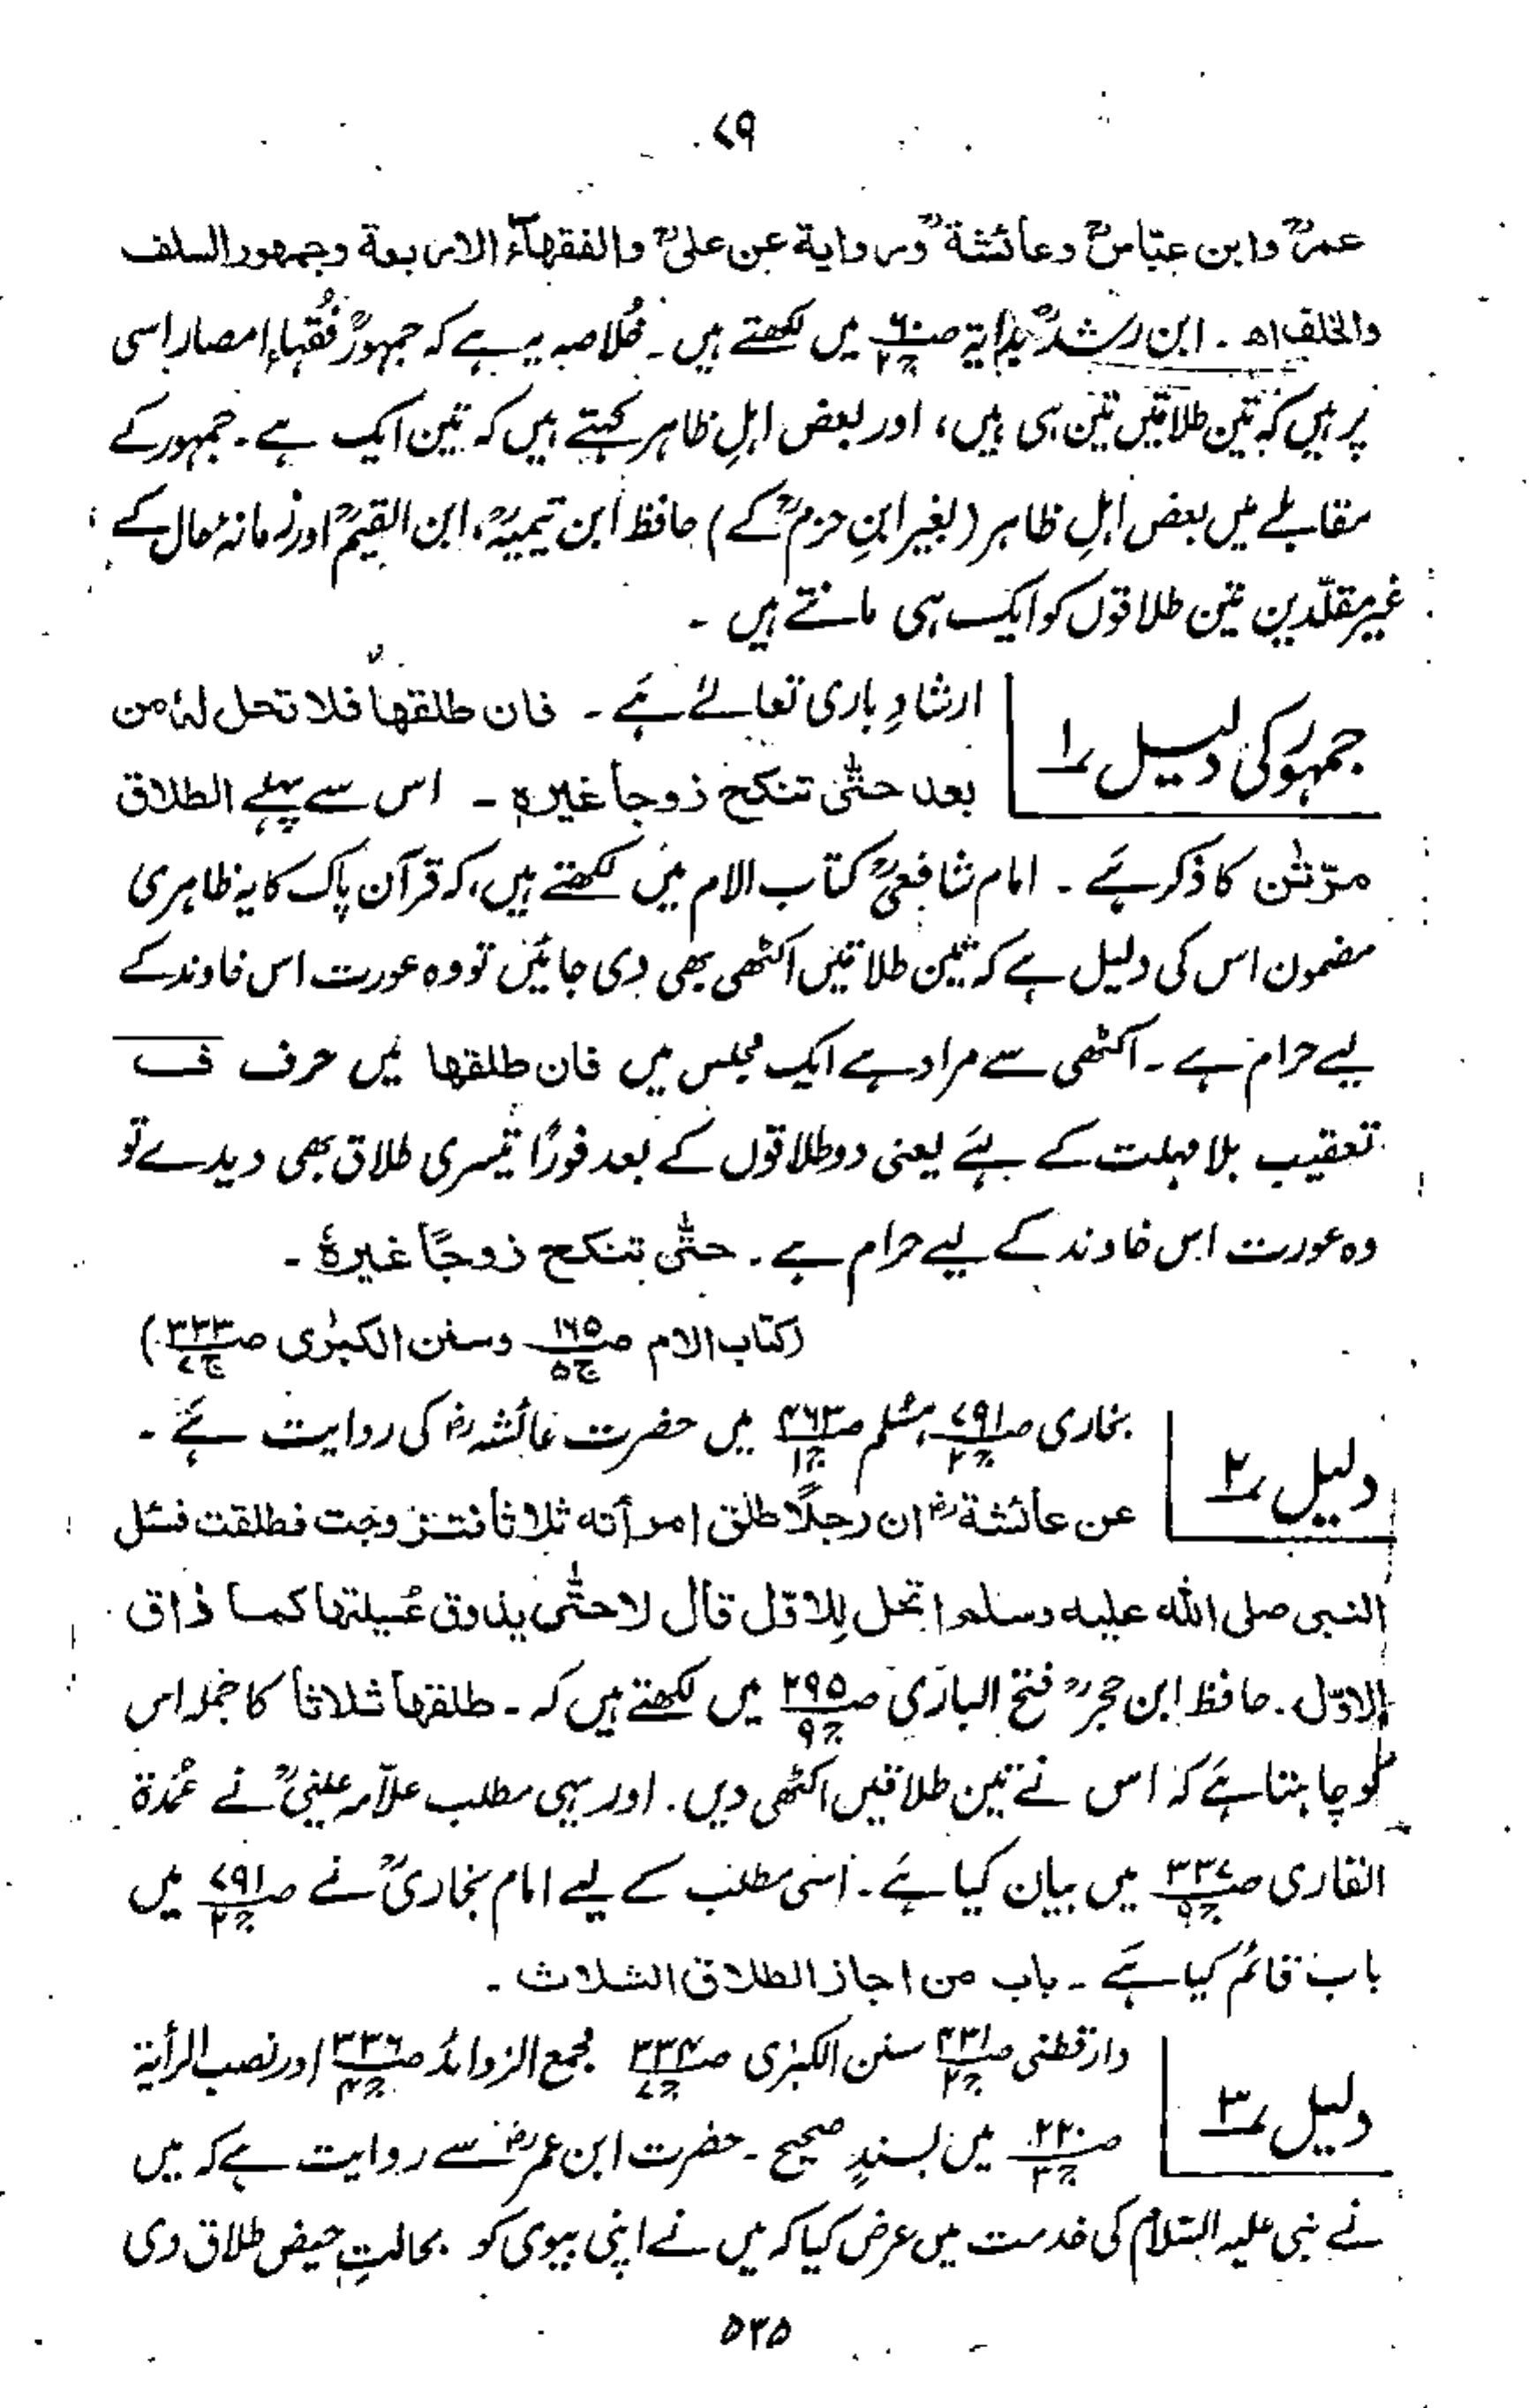 ۷۹
عمرؓ وابن عبّاسؓ وعائشة ؓ ورواية عن علیؓ والفقهآء الاربعة وجمهور السلف
والخلف اھ ۔ ابن رشدؒ بدایة ص۶۰ ج۲ میں لکھتے ہیں ۔ خُلاصہ یہ ہے کہ جمہورؒ فُقہاءِ امصار اسی
پر ہیں کہ تین طلاقیں تین ہی ہیں، اور بعض اہلِ ظاہر کہتے ہیں کہ تین ایک ہے ۔ جمہور کے
مقابلے میں بعض اہلِ ظاہر (بغیر ابنِ حزمؒ کے) حافظ ابن تیمیہؒ، ابن القیمؒ اور زمانۂ حال کے
غیر مقلّدین تین طلاقوں کو ایک ہی مانتے ہیں ۔
جمہور کی دلیل ۱ ارشادِ باری تعالےٰ ہے ۔ فان طلقها فلا تحل لهٗ من
بعد حتّٰى تنكح زوجاً غیرہٖ ۔ اس سے پہلے الطلاق
مرّتٰن کا ذکر ہے ۔ امام شافعیؒ کتاب الام میں لکھتے ہیں، کہ قرآن پاک کا یہ ظاہری
مضمون اس کی دلیل ہے کہ تین طلاقیں اکٹھی بھی دی جائیں تو وہ عورت اس خاوند کے
لیے حرام ہے ۔ اکٹھی سے مراد ہے ایک مجلس میں فان طلقها میں حرف ف
تعقیب بلا مہلت کے لئے یعنی دو طلاقوں کے بعد فورًا تیسری طلاق بھی دیدے تو
وہ عورت اس خاوند کے لیے حرام ہے ۔ حتّٰى تنكح زوجًا غیرہٗ ۔
(کتاب الام ص۱۶۵ ج۵ وسنن الکبرٰی ص۳۳۳ ج۷)
دلیل ۲ بخاری ص۷۹۱ ج۲، مسلم ص۴۶۳ ج۱ میں حضرت عائشہؓ کی روایت ہے ۔
عن عائشة ؓ ان رجلًا طلق امرأته ثلاثا فتزوجت فطلقت فسئل
النبی صلی الله علیه وسلم اتحل للاول قال لا حتّٰی یذوق عُسیلتها کما ذاق
الاوّل ۔ حافظ ابن حجرؒ فتح الباری ص۲۹۵ ج۹ میں لکھتے ہیں کہ ۔ طلقها ثلاثا کا جملہ اس
کو چاہتا ہے کہ اس نے تین طلاقیں اکٹھی دیں ۔ اور یہی مطلب علاّمہ عینیؒ نے عُمدۃ
القاری ص۳۳۷ ج۹ میں بیان کیا ہے ۔ اسی مطلب کے لیے امام بخاریؒ نے ص۷۹۱ ج۲ میں
باب قائم کیا ہے ۔ باب من اجاز الطلاق الثلاث ۔
دلیل ۳ دارقطنی ص۴۳۱ ج۲ سنن الکبرٰی ص۳۳۴ ج۷ مجمع الزوائد ص۳۳۶ ج۴ اور نصب الرأیة
ص۲۲۰ ج۳ میں بسندٍ صحیح ۔ حضرت ابن عمرؓ سے روایت ہے کہ میں
نے نبی علیہ السّلام کی خدمت میں عرض کیا کہ میں نے اپنی بیوی کو بحالتِ حیض طلاق دی
۵۳۵